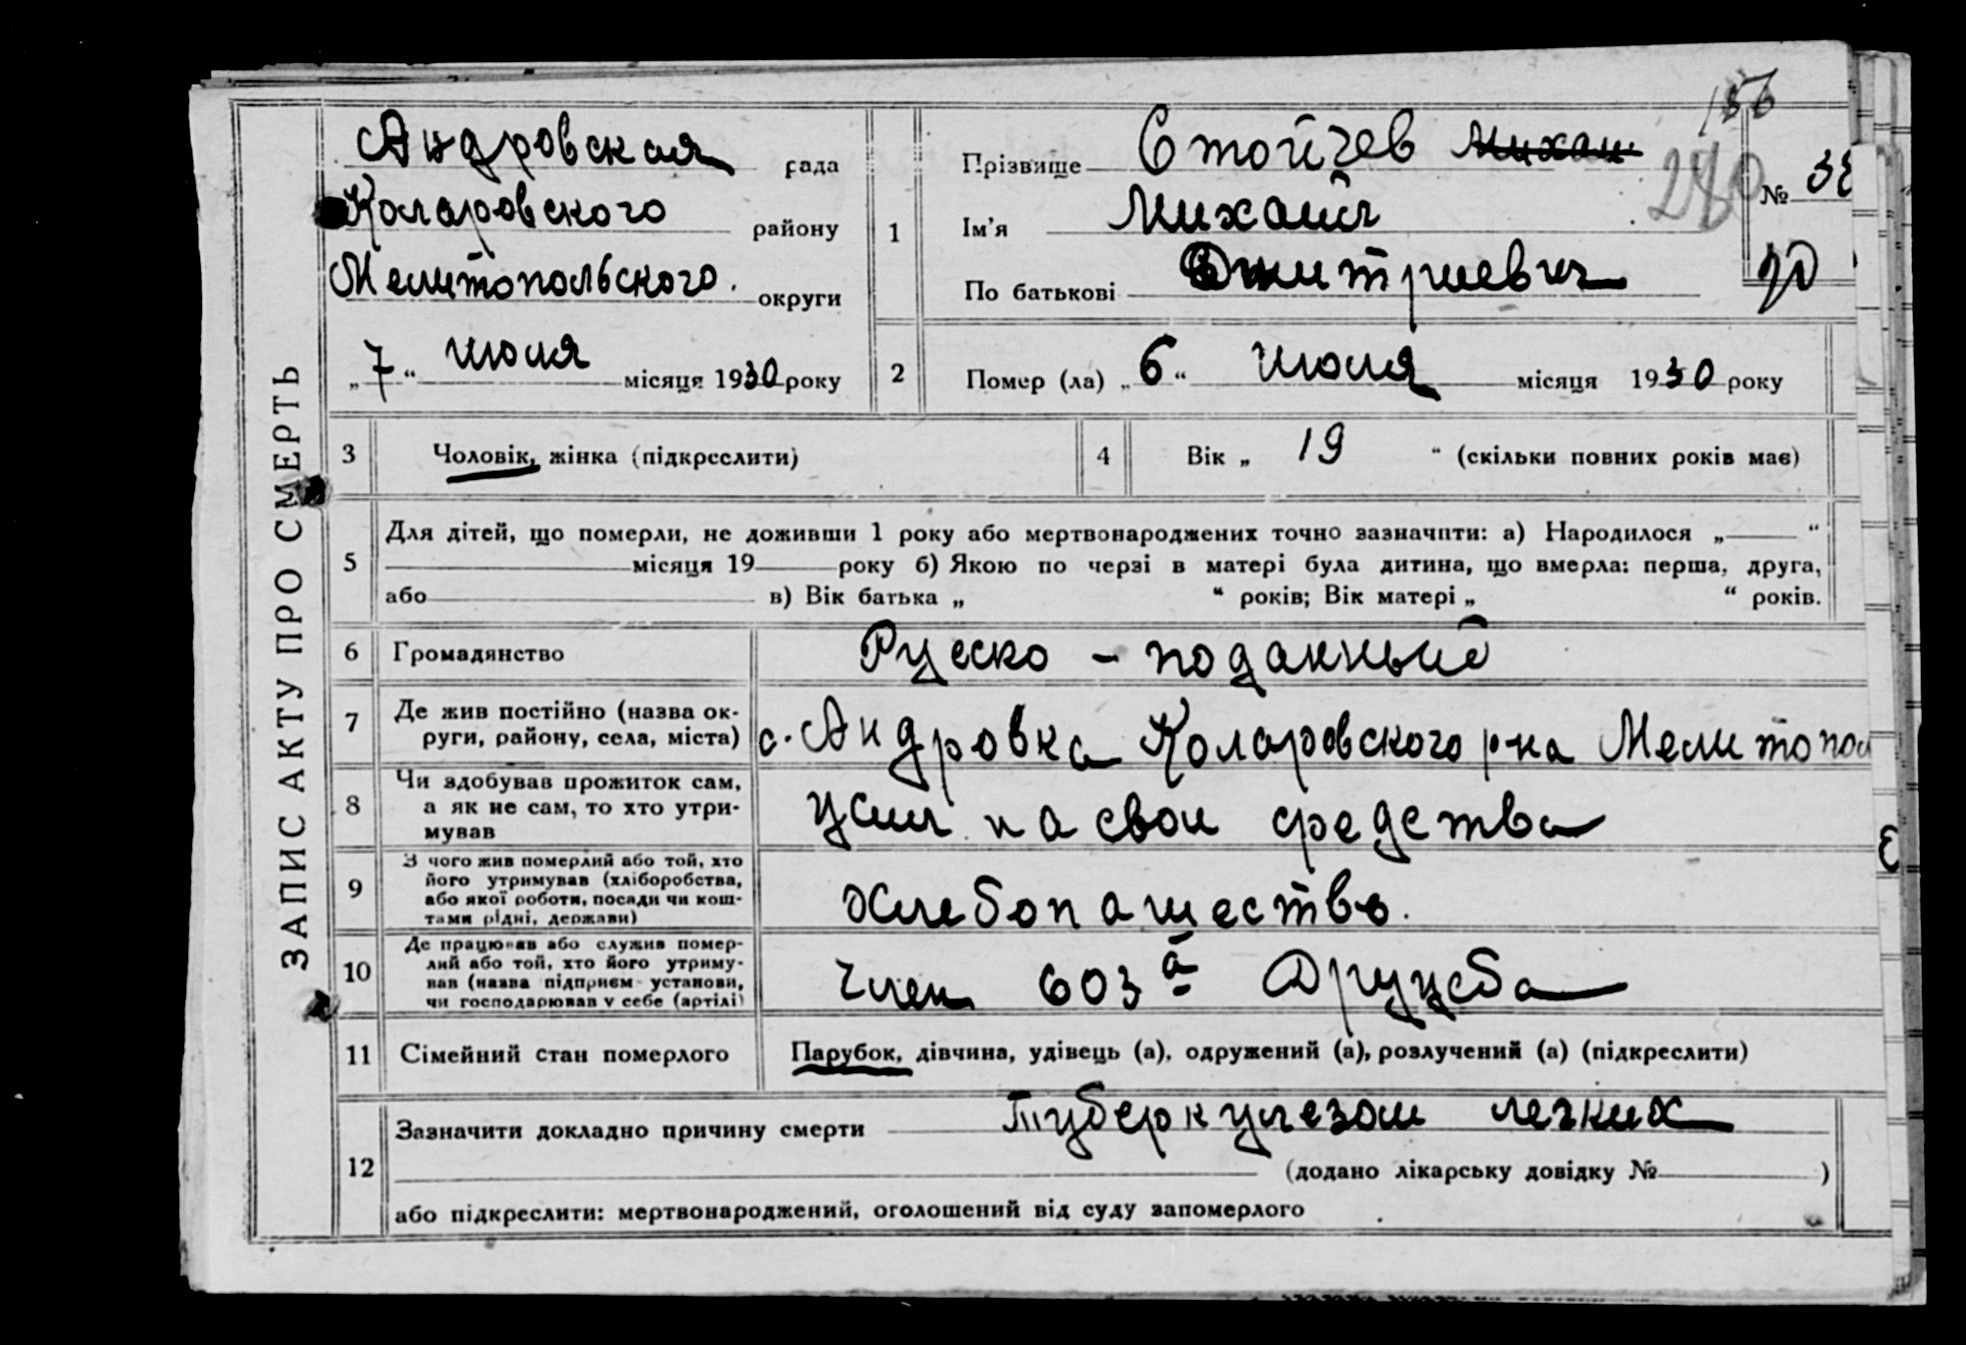 ЗАПИС АКТУ ПРО СМЕРТЬ
156
280
Андровская рада
Коларовского району
Мелитопольского. округи
„7“ июля місяця 1930 року
1
Прізвище Стойчев Михаи
Ім'я Михаил
По батькові Дмитриевич
№ 38
2
Помер (ла) „6“ июля місяця 1930 року
3
Чоловік, жінка (підкреслити)
4
Вік „ 19 “ (скільки повних років має)
5
Для дітей, що померли, не доживши 1 року або мертвонароджених точно зазначити: а) Народилося „ “
місяця 19 року б) Якою по черзі в матері була дитина, що вмерла: перша, друга,
або в) Вік батька „ “ років; Вік матері „ “ років.
6
Громадянство
Руско - поданный
7
Де жив постійно (назва ок-
руги, району, села, міста)
с. Андровка Коларовского р-на Мелитопол
8
Чи здобував прожиток сам,
а як не сам, то хто утри-
мував
на свои средства
9
З чого жив померлий або той, хто
його утримував (хліборобства,
або якої роботи, посади чи кош-
тами рідні, держави)
Хлебопашество.
10
Де працював або служив помер-
лий або той, хто його утриму-
вав (назва підприєм- установи,
чи господарював у себе (артілі)
Член соза Дружба
11
Сімейний стан померлого
Парубок, дівчина, удівець (а), одружений (а), розлучений (а) (підкреслити)
12
Зазначити докладно причину смерти Туберкулезом легких
(додано лікарську довідку № )
або підкреслити: мертвонароджений, оголошений від суду запомерлого